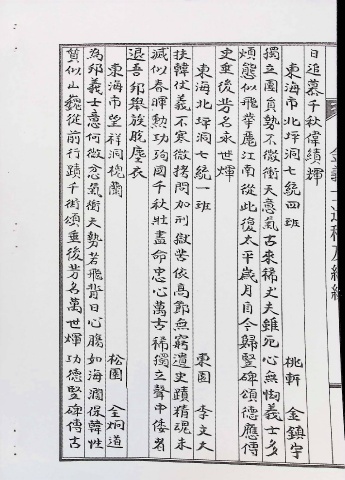 日追慕千秋偉績輝
東海市北坪洞七統四班 桃軒 金鎮宇
獨立團員勢不微衝天意氣古來稀丈夫雖死心無悔義士多
煩態似飛華麗江南從此復太平歲月自今歸竪碑頌德應傳
史垂後芳名永世煇
東海北坪洞七統一班 東園 李文夫
扶韓仗義不寒微拷問加刑獄苦依高節無窮遺史蹟精魂未
滅似春暉勲功殉國千秋壯盡命忠心萬古稀獨立聲中倭者
退吾邦舉族脫塵衣
東海市望祥洞槐蘭 松園 金炯道
為邦義士意何微忿氣衝天勢若飛背日心腸如海濶保韓性
質似山巍從前行蹟千街頌垂後芳名萬世煇功德竪碑傳古